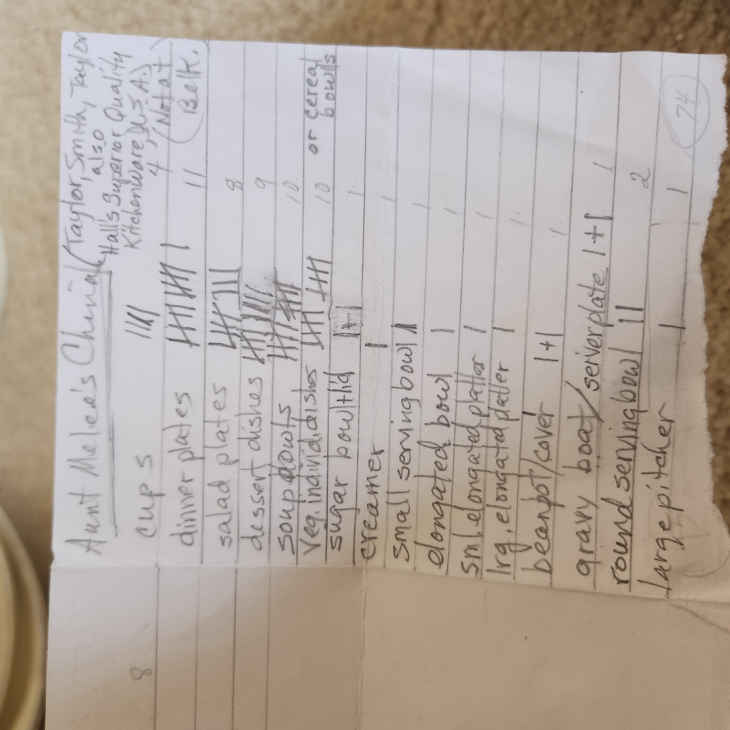 Aunt Melea's China (Taylor, Smith, Taylor
also
Hall's Superior Quality
Kitchenware U.S.A.)
8 cups //// 4 (Not at
dinner plates 11 Belk.)
salad plates 8
dessert dishes 9
soup bowls 10
veg. individ. dishes 10 or cereal bowls
sugar bowl + lid 1+1 1
creamer 1 1
small serving bowl 1 1
elongated bowl 1 1
sml. elongated platter 1 1
lrg. elongated platter 1 1
beanpot/cover 1+1 1
gravy boat/serverplate 1+1 1
round serving bowl 11 2
large pitcher 1 1
74